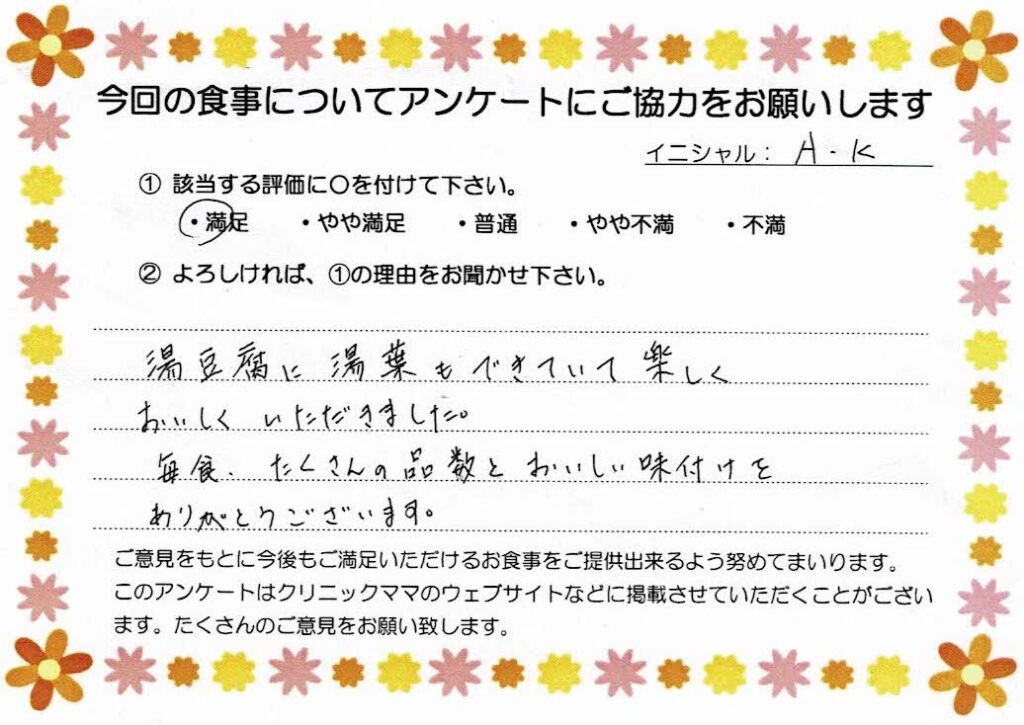 今回の食事についてアンケートにご協力をお願いします
イニシャル： A・K
① 該当する評価に○を付けて下さい。
・満足 ・やや満足 ・普通 ・やや不満 ・不満
② よろしければ、①の理由をお聞かせ下さい。
湯豆腐に湯葉もできていて楽しく
おいしくいただきました。
毎食、たくさんの品数とおいしい味付けを
ありがとうございます。
ご意見をもとに今後もご満足いただけるお食事をご提供出来るよう努めてまいります。
このアンケートはクリニックママのウェブサイトなどに掲載させていただくことがござい
ます。たくさんのご意見をお願い致します。